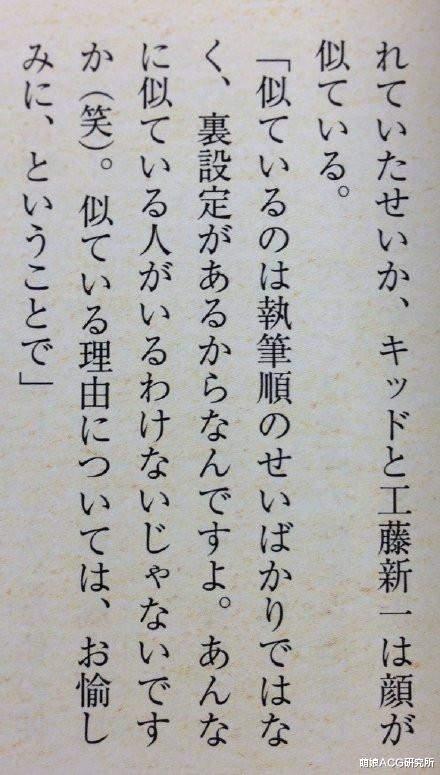 れていたせいか、キッドと工藤新一は顔が
似ている。
「似ているのは執筆順のせいばかりではな
く、裏設定があるからなんですよ。あんな
に似ている人がいるわけないじゃないです
か（笑）。似ている理由については、お愉し
みに、ということで」
萌娘ACG研究所